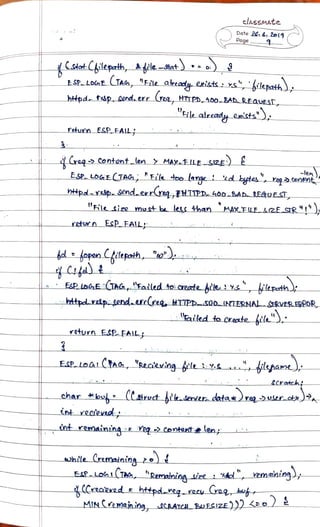 classmate
Date 26.6.2019
Page 9
if (stat (filepath, &file_stat) == 0) {
ESP_LOGE (TAG, "File already exists : %s", filepath);
httpd_resp_send_err (req, HTTPD_400_BAD_REQUEST,
"File already exists");
return ESP_FAIL;
}
if (req -> content_len > MAX_FILE_SIZE) {
ESP_LOGE (TAG, "File too large : %d bytes", req->content_len);
httpd_resp_send_err(req, HTTPD_400_BAD_REQUEST,
"File size must be less than " MAX_FILE_SIZE_STR "!");
return ESP_FAIL;
fd = fopen (filepath, "w");
if (!fd) {
ESP_LOGE (TAG, "Failed to create file : %s", filepath);
httpd_resp_send_err(req, HTTPD_500_INTERNAL_SERVER_ERROR,
"Failed to create file");
return ESP_FAIL;
}
ESP_LOGI (TAG, "Recieving file : %s ...", filename);
char *buf = ((struct file_server_data *) req -> user_ctx)-> scratch;
int recieved;
int remaining = req -> content_len;
while (remaining > 0) {
ESP_LOGI (TAG, "Remaining size : %d", remaining);
if ((recieved = httpd_req_recv (req, buf,
MIN (remaining, SCRATCH_BUFSIZE))) <= 0) {